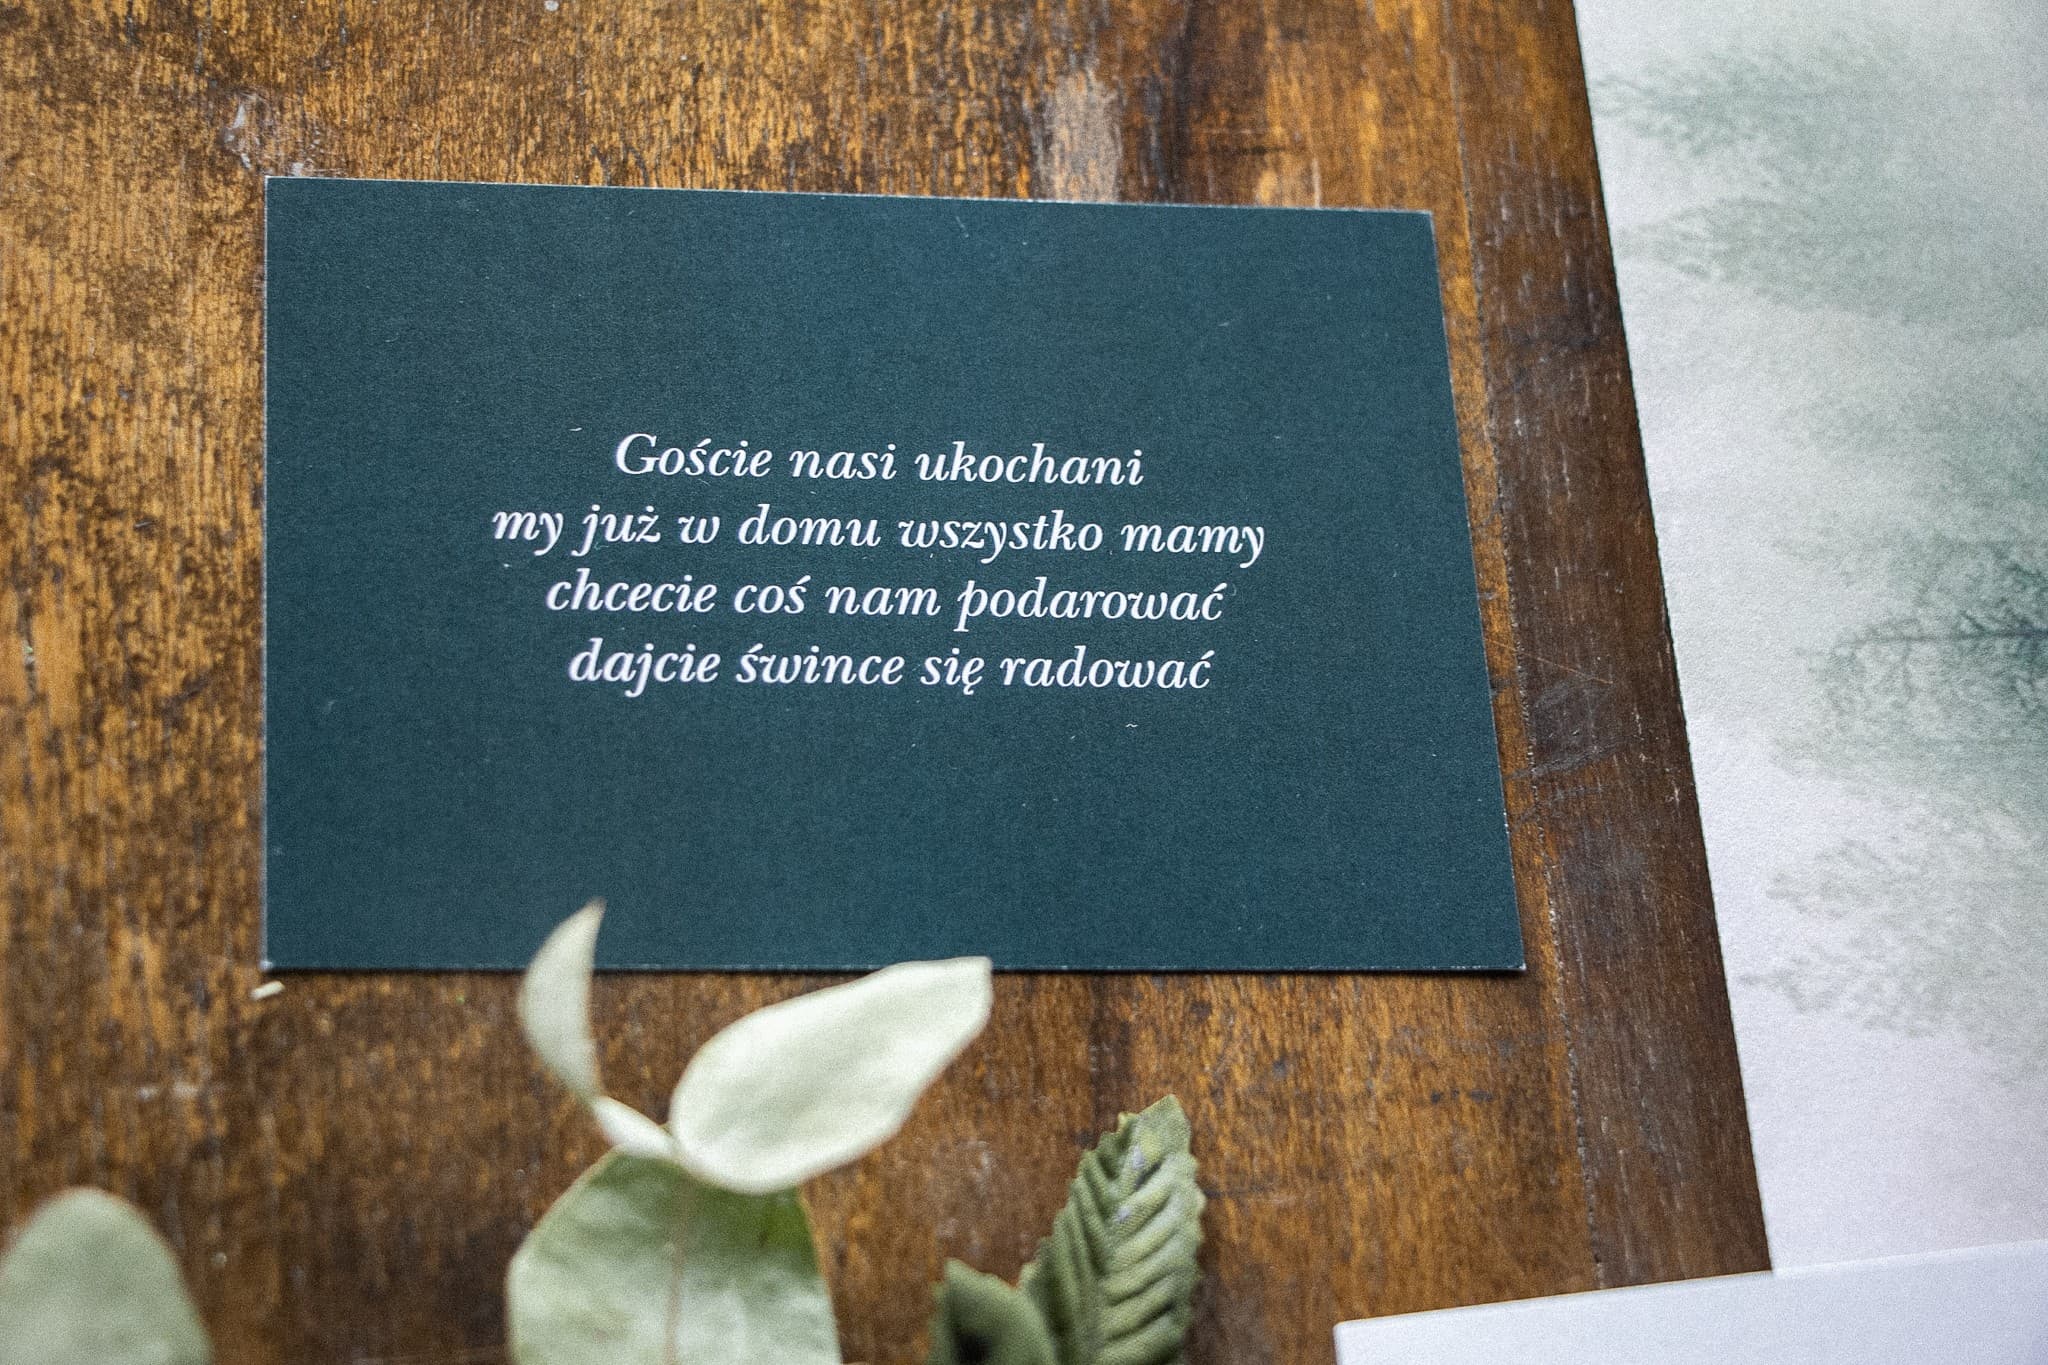 Goście nasi ukochani
my już w domu wszystko mamy
chcecie coś nam podarować
dajcie śwince się radować